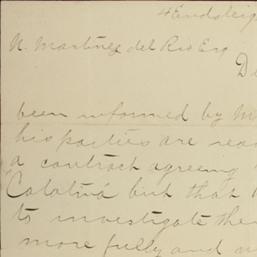 4 Endsleig
N. Martinez del Rio Esq
D
been informed by M
his parties are rea
a contract agreeing
"Catalina but that
to investigate the
more fully and